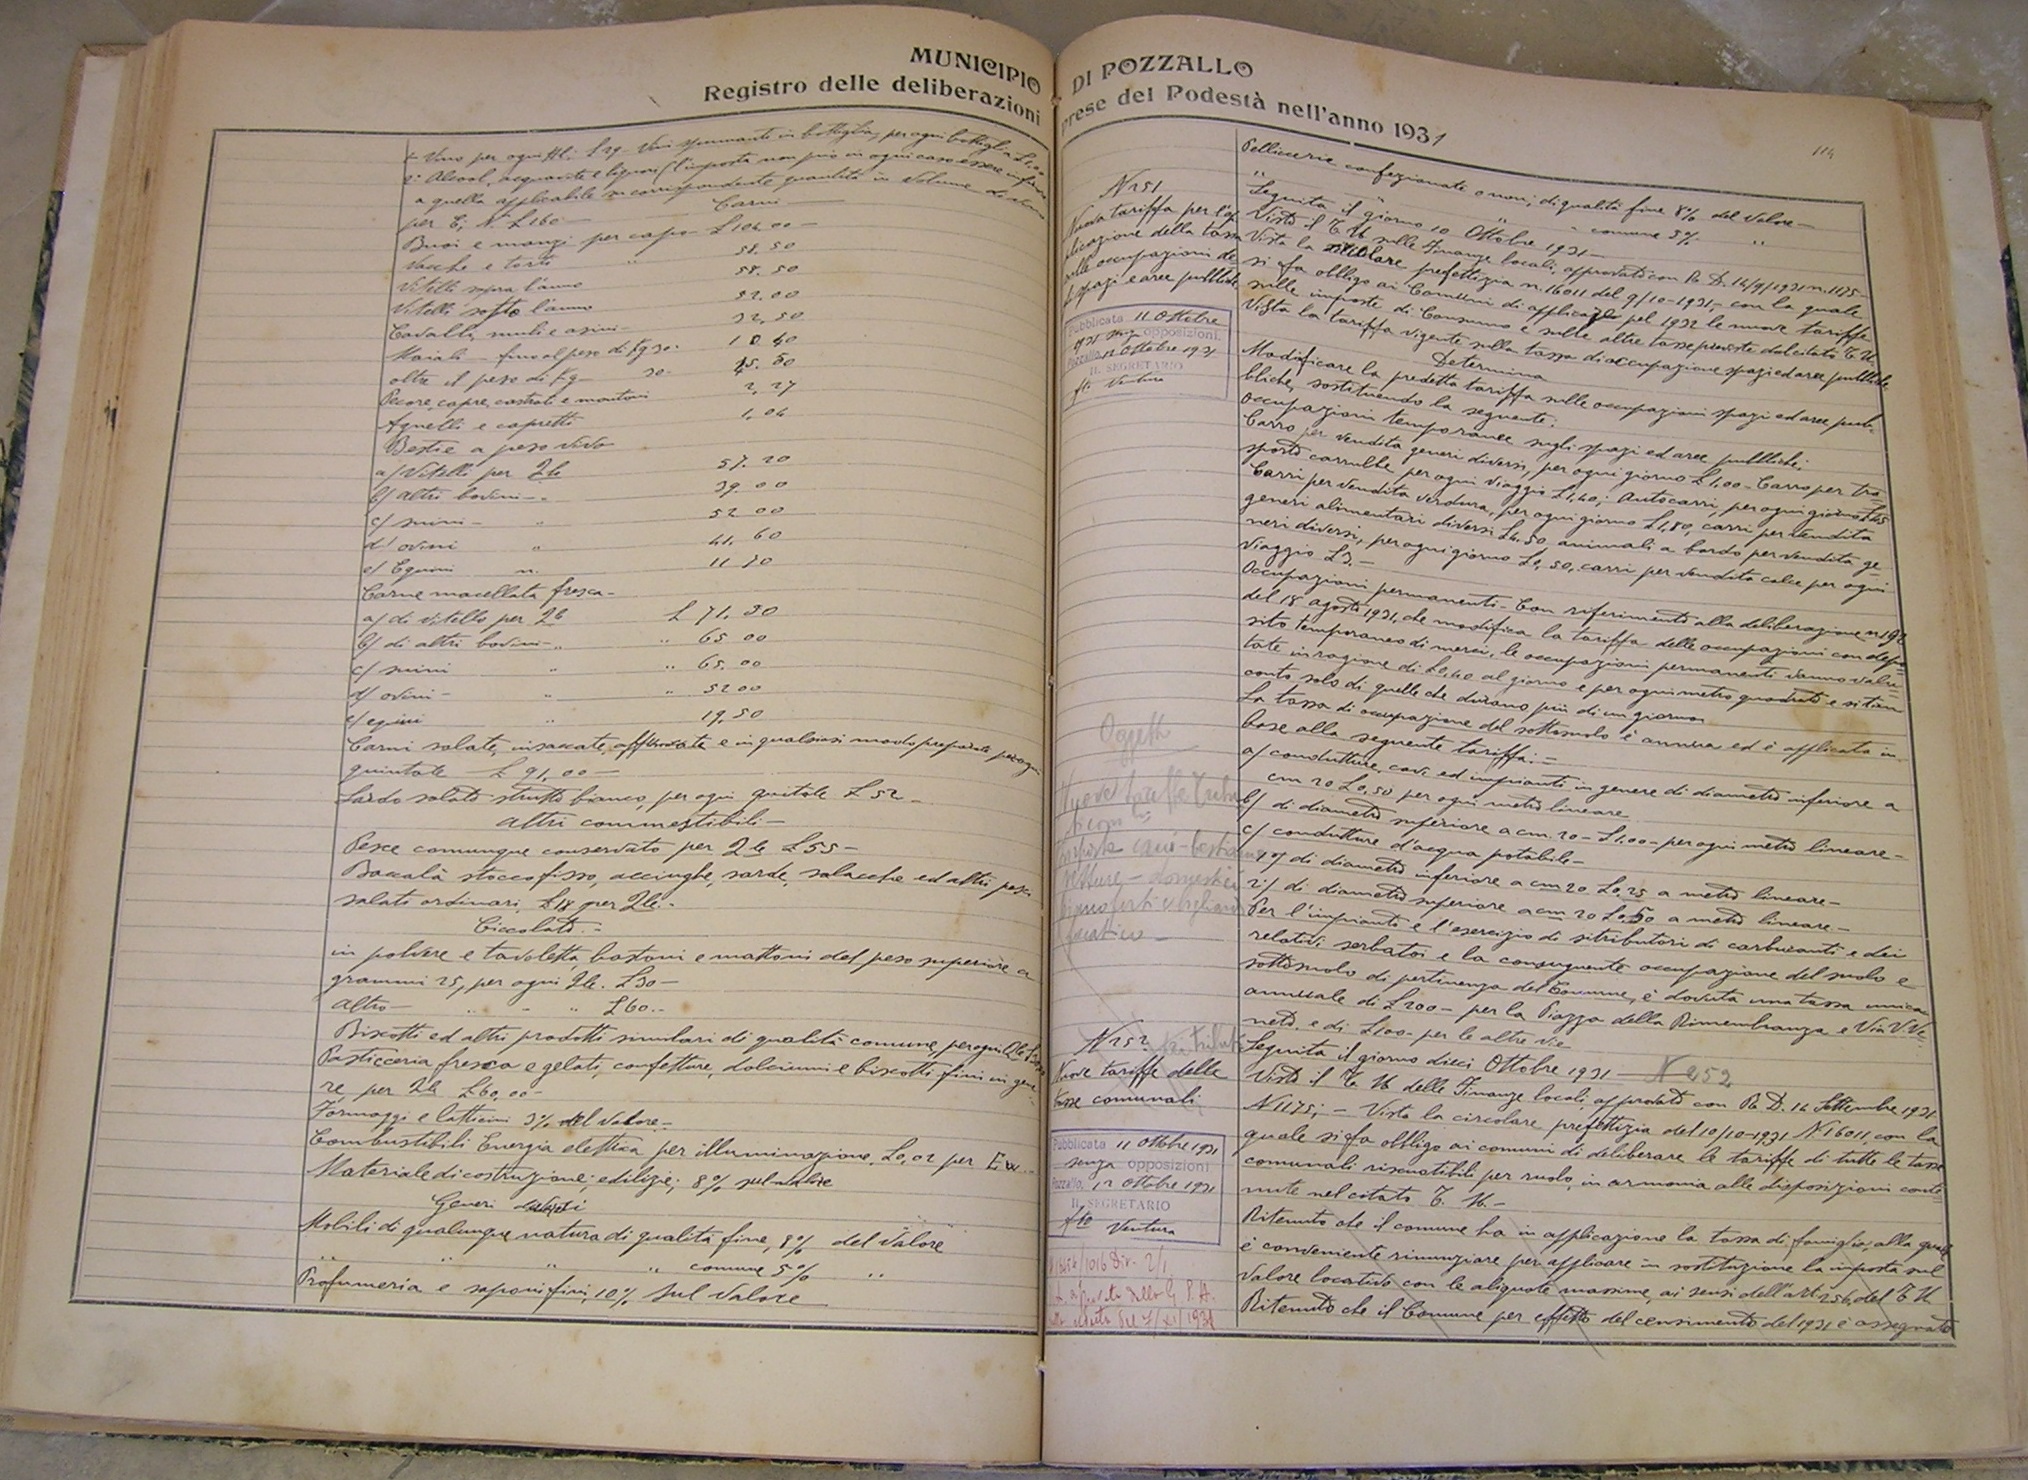 MUNICIPIO DI POZZALLO
Registro delle deliberazioni prese del Podestà nell'anno 1931
Vino per ogni Hl. £ 29 - Vini spumanti in bottiglia, per ogni bottiglia £
2° Alcool, acquavite e liquori (l'imposta non può in ogni caso essere inferiore
a quella applicabile in corrispondente quantità in volume di
per C; N. £ 160 -
Carni
Buoi e manzi per capo £ 104.00 -
Vacche e tori " 58.50
Vitelli sopra l'anno 58.50
Vitelli sotto l'anno 32.00
Cavalli, muli e asini - 32.50
Maiali - fino al peso di Kg 30.
oltre il peso di Kg - 30.
Pecore, capre, castrati e montoni 2,27
Agnelli e capretti 1,04
Bestie a peso vivo
a/ Vitelli per Qle 57.20
b/ altri bovini - " 39.00
c/ suini - " 52 00
d/ ovini " 41.60
e/ Equini " 11 70
Carne macellata fresca -
a/ di vitello per Qle £ 71,30
b/ di altri bovini - " " 65 00
c/ suini " " 65.00
d/ ovini - " " 52 00
e/ equini " 19.50
Carni salate, insaccate, affumicate e in qualsiasi modo preparate per ogni
quintale £ 91,00 -
Lardo salato strutto bianco, per ogni quintale £ 52 -
altri commestibili -
Pesce comunque conservato per Qle £ 55 -
Baccalà stoccofisso, acciughe, sarde, salacche ed altri pesci
salati ordinari, £ 18 per Qle. -
Ciccolato. -
in polvere e tavoletta, bastoni e mattoni del peso superiore a
grammi 25, per ogni Qle. £ 30 -
altro - " - " £ 60. -
Biscotti ed altri prodotti similari di qualità comune, per ogni Qle
Pasticceria fresca e gelati, confetture, dolciumi e biscotti fini in gene
re, per Qle £ 60,00 -
Formaggi e latticini 3% del valore -
Combustibili Energia elettrica per illuminazione, £ 0,02 per
Materiale di costruzione; edilizie; 8% sul valore
Generi
Mobili di qualunque natura, di qualità fine, 8% del valore
" " " " comune 5% "
Profumeria e saponi fini, 10% sul valore
114
Pelliccerie confezionate o non; di qualità fine 8% del valore -
" " " " comune 5% "
N 251
Nuova tariffa per l'ap
plicazione della tassa
sulle occupazioni di
spazi e aree pubbliche
Pubblicata 11 Ottobre
1931 senza opposizioni.
Pozzallo, 12 Ottobre 1931
IL SEGRETARIO
fto Ventura
Seguita il giorno 10 Ottobre 1931 -
Visto il T. U. sulle Finanze locali, approvato con R. D. 14/9/1931 n. 1175 -
Vista la circolare prefettizia n. 16011 del 9/10-1931 - con la quale
si fa obbligo ai Comuni di applicare pel 1932 le nuove tariffe
sulle imposte di Consumo e sulle altre tasse previste dal citato T. U.
Vista la tariffa vigente sulla tassa di occupazione spazi ed aree pubbliche
Determina
Modificare la predetta tariffa sulle occupazioni spazi ed aree pub-
bliche, sostituendo la seguente:
Occupazioni temporanee sugli spazi ed aree pubbliche:
Carro per vendita generi diversi, per ogni giorno £ 1,00 - Carro per tra-
sporto carrubbe per ogni viaggio £ 1,40; Autocarri, per ogni giorno
Carri per vendita verdura, per ogni giorno £ 1,80, carri per vendita
generi alimentari diversi £ 4.50 animali a bardo per vendita ge-
neri diversi, per ogni giorno £ 0,50, carri per vendita calce per ogni
viaggio £ 3. -
Occupazioni permanenti - Con riferimento alla deliberazione n 192
del 18 agosto 1931, che modifica la tariffa delle occupazioni con depo-
sito temporaneo di merci, le occupazioni permanenti vanno valu-
tate in ragione di £ 0,40 al giorno e per ogni metro quadrato e si tien
conto solo di quelle che durano più di un giorno
La tassa di occupazione del sottosuolo è annua ed è applicata in
base alla seguente tariffa: =
a/ condutture, cavi ed impianti in genere di diametro inferiore a
cm 20 £ 0,50 per ogni metro lineare
b/ di diametro superiore a cm. 20 - £ 1.00 - per ogni metro lineare -
c/ condutture d'acqua potabile -
1°/ di diametro inferiore a cm 20 £ 0,25 a metro lineare -
2°/ di diametro superiore a cm 20 £ 0,50 a metro lineare -
Per l'impianto e l'esercizio di distributori di carburanti e dei
relativi serbatoi e la conseguente occupazione del suolo e
sottosuolo di pertinenza del Comune, è dovuta una tassa unica
annuale di £ 200 - per la Piazza della Rimembranza e Via V. Ve-
neto e di £ 100 - per le altre vie
Oggetto
Nuove tariffe
N 252
Nuove tariffe delle
tasse comunali
Pubblicata 11 Ottobre 1931
senza opposizioni
Pozzallo, 12 Ottobre 1931
IL SEGRETARIO
fto Ventura
Seguita il giorno dieci Ottobre 1931 - N 252
Visto il T. U. delle Finanze locali, approvato con R. D. 14 Settembre 1931
N 1175; - Vista la circolare prefettizia del 10/10-1931 N. 16011, con la
quale si fa obbligo ai comuni di deliberare le tariffe di tutte le tasse
comunali riscuotibili per ruolo, in armonia alle disposizioni conte-
nute nel citato T. U. -
Ritenuto che il comune ha in applicazione la tassa di famiglia, alla quale
è conveniente rinunziare per applicare in sostituzione la imposta sul
valore locativo con le aliquote massime, ai sensi dell'art. 256, del T U
Ritenuto che il Comune per effetto del censimento del 1931 è assegnato